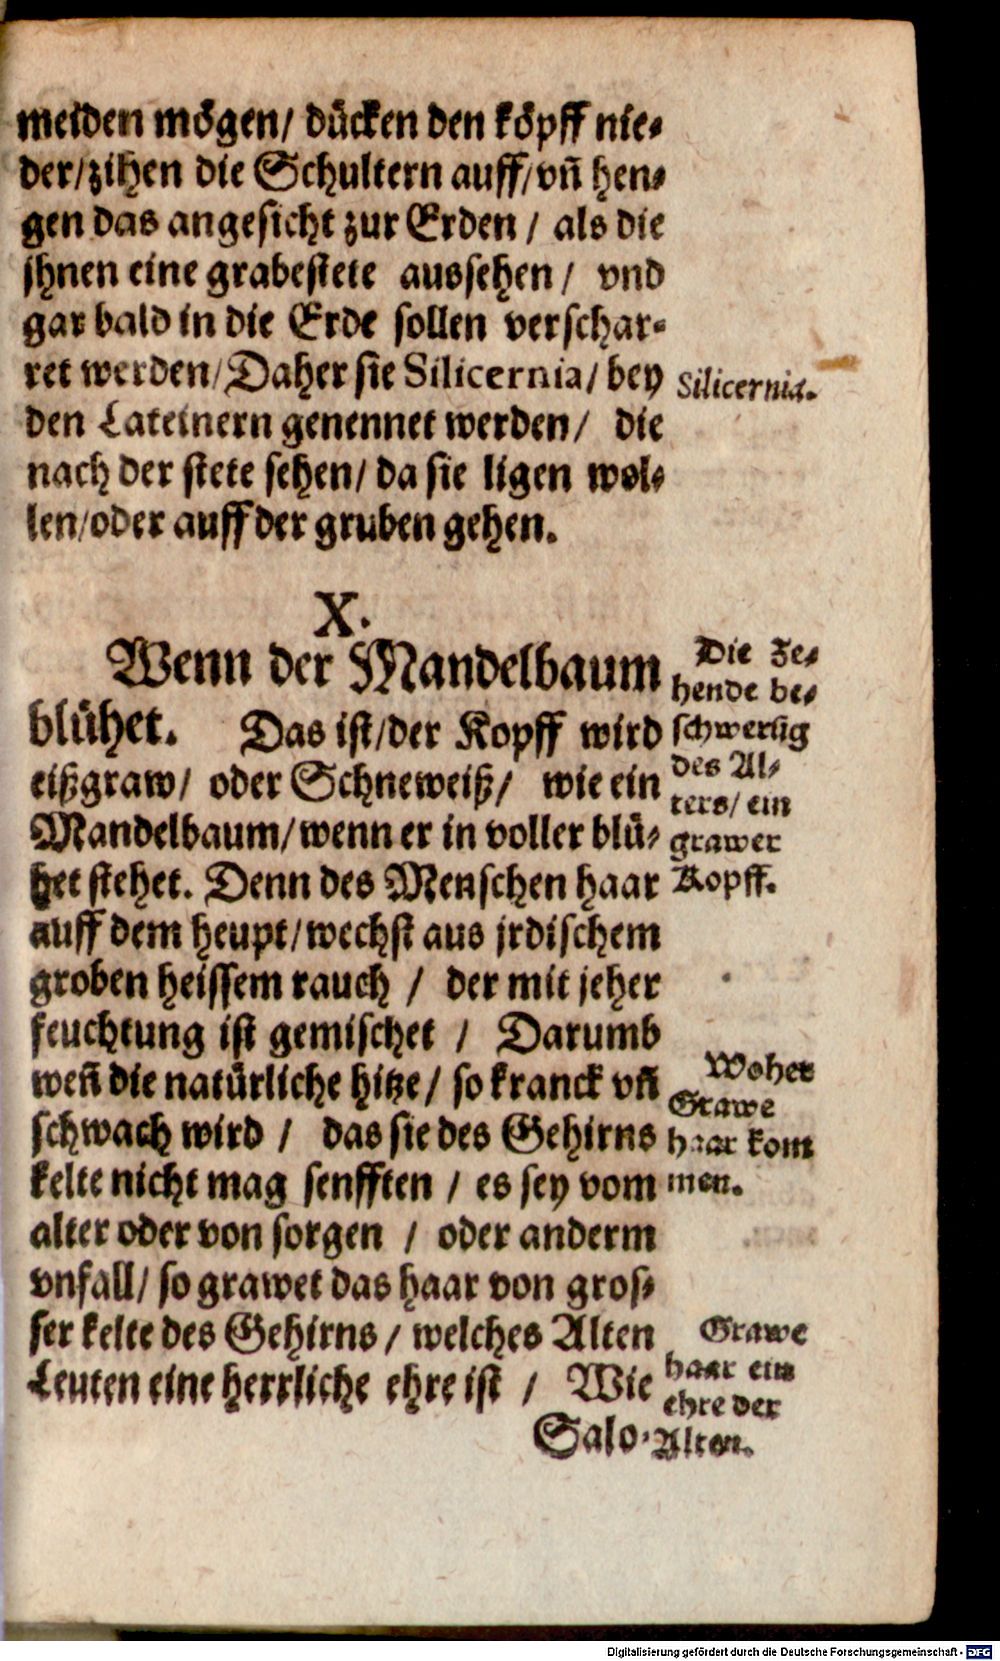 meiden mögen/ dücken den köpff nie-
der/zihen die Schultern auff/vñ hen-
gen das angesicht zur Erden / als die
jhnen eine grabestete aussehen / vnd
gar bald in die Erde sollen verschar-
ret werden/Daher sie Silicernia/ bey
den Lateinern genennet werden/ die
nach der stete sehen/ da sie ligen wol-
len/oder auff der gruben gehen.
Silicernia.
X.
Wenn der Mandelbaum
blühet. Das ist/der Kopff wird
eißgraw/ oder Schneweiß/ wie ein
Mandelbaum/wenn er in voller blü-
het stehet. Denn des Menschen haar
auff dem heupt/wechst aus jrdischem
groben heissem rauch / der mit jeher
feuchtung ist gemischet / Darumb
weñ die natürliche hitze/ so kranck vñ
schwach wird / das sie des Gehirns
kelte nicht mag senfften / es sey vom
alter oder von sorgen / oder anderm
vnfall/ so grawet das haar von gros-
ser kelte des Gehirns / welches Alten
Leuten eine herrliche ehre ist / Wie
Salo-
Die Ze-
hende be-
schwerūg
des Al-
ters/ ein
grawer
Kopff.
Woher
Grawe
haar kom
men.
Grawe
haar ein
ehre der
Alten.
Digitalisierung gefördert durch die Deutsche Forschungsgemeinschaft - DFG